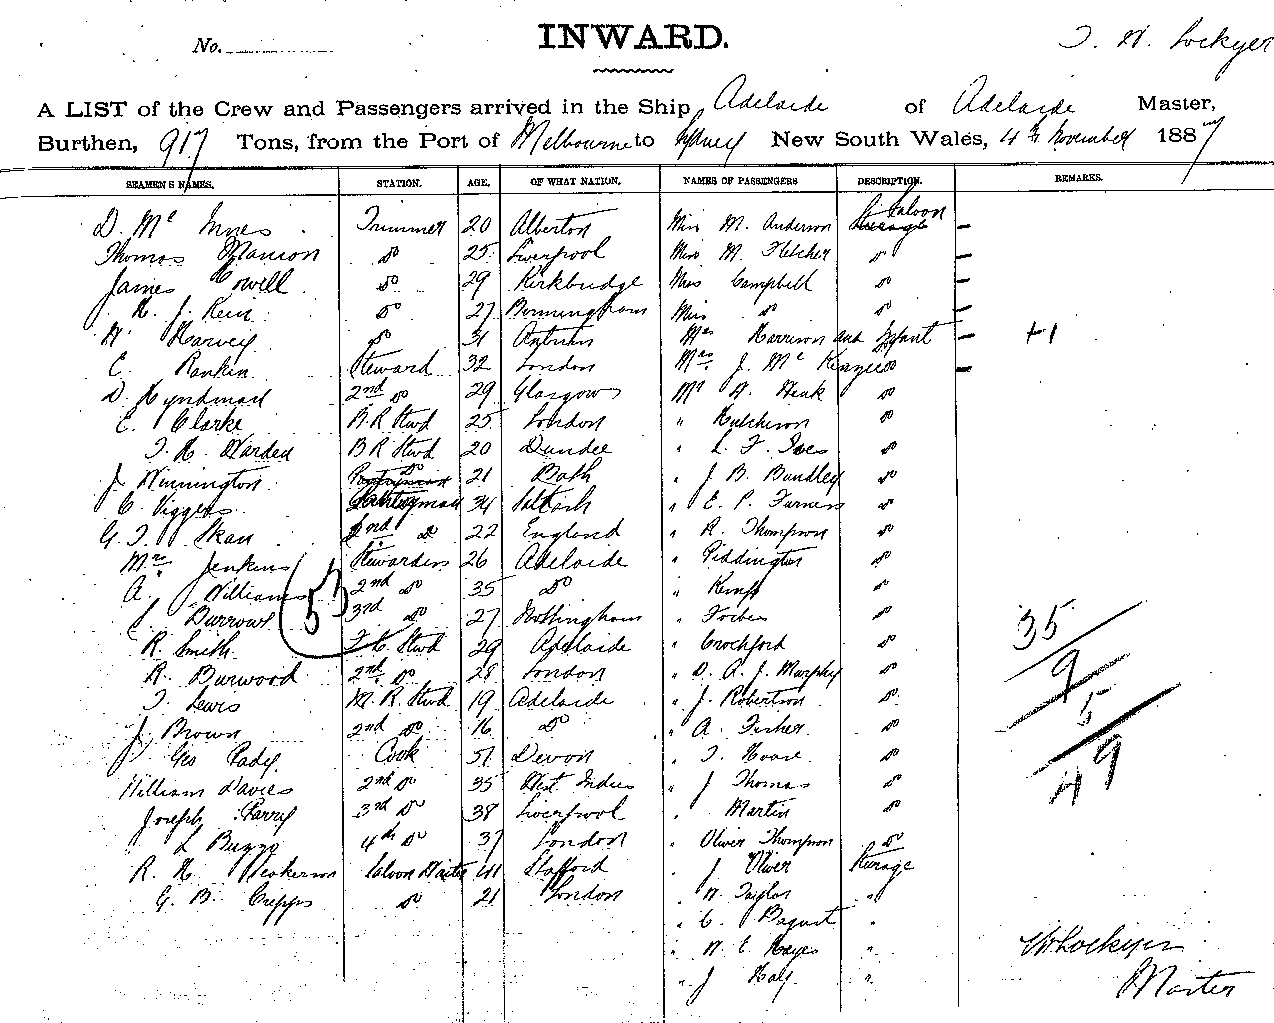 No.
INWARD.
A LIST of the Crew and Passengers arrived in the Ship Adelaide of Adelaide Master,
Burthen, 917 Tons, from the Port of Melbourne to Sydney New South Wales, 4th November 1887
SEAMEN'S NAMES. STATION. AGE. OF WHAT NATION. NAMES OF PASSENGERS DESCRIPTION. REMARKS.
D. Mc Innes Trimmer 20 Alberton Miss M. Anderson Saloon
Thomas Manson do 25 Liverpool Miss M. Fletcher do
James Cowell do 29 Kirkbridge Miss Campbell do
do 27 Birmingham Miss do do
W. Harvey do 31 Mrs Harrison and Infant +1
E. Rankin Steward 32 London Mrs J. Mc do
D. Hyndman 2nd do 29 Glasgow Mr do
E. Clarke B.R Stwd 25 London " Hutchison do
T. H. Warden B R Stwd 20 Dundee " L. F. do
J. Winnington do 21 Bath " J B. Bundley do
C. Viggers Pantryman 34 Saltash " E. P. do
G. T. Skau 2nd do 22 England " R. Thompson do
Mrs Jenkins Stewardess 26 Adelaide " Piddington do
A. Williams 2nd do 35 do " Kemp do
Burrows 3rd do 27 Nottingham " Forbes do
R. Smith F.C. Stwd 29 Adelaide " Crockford do
R. Burwood 2nd do 28 London " D. A. J. Murphy do
T. Lewis M.R. Stwd 19 Adelaide " J. Robertson do
J. Brown 2nd do 16 do " A. Fisher do
Geo Eady Cook 51 Devon " T. Hoare do
William Davies 2nd do 35 West Indies " J Thomas do
Joseph Parry 3rd do 38 Liverpool " Martin do
4th do 37 London " Oliver Thompson do
R. H. Saloon Waiter 41 Stafford " J Oliver Steerage
G. B. Cripps do 21 London " W. Taylor "
" C. "
" W. E. Hayes "
" J "
53
35
9
5
49
W Lockyer
Master